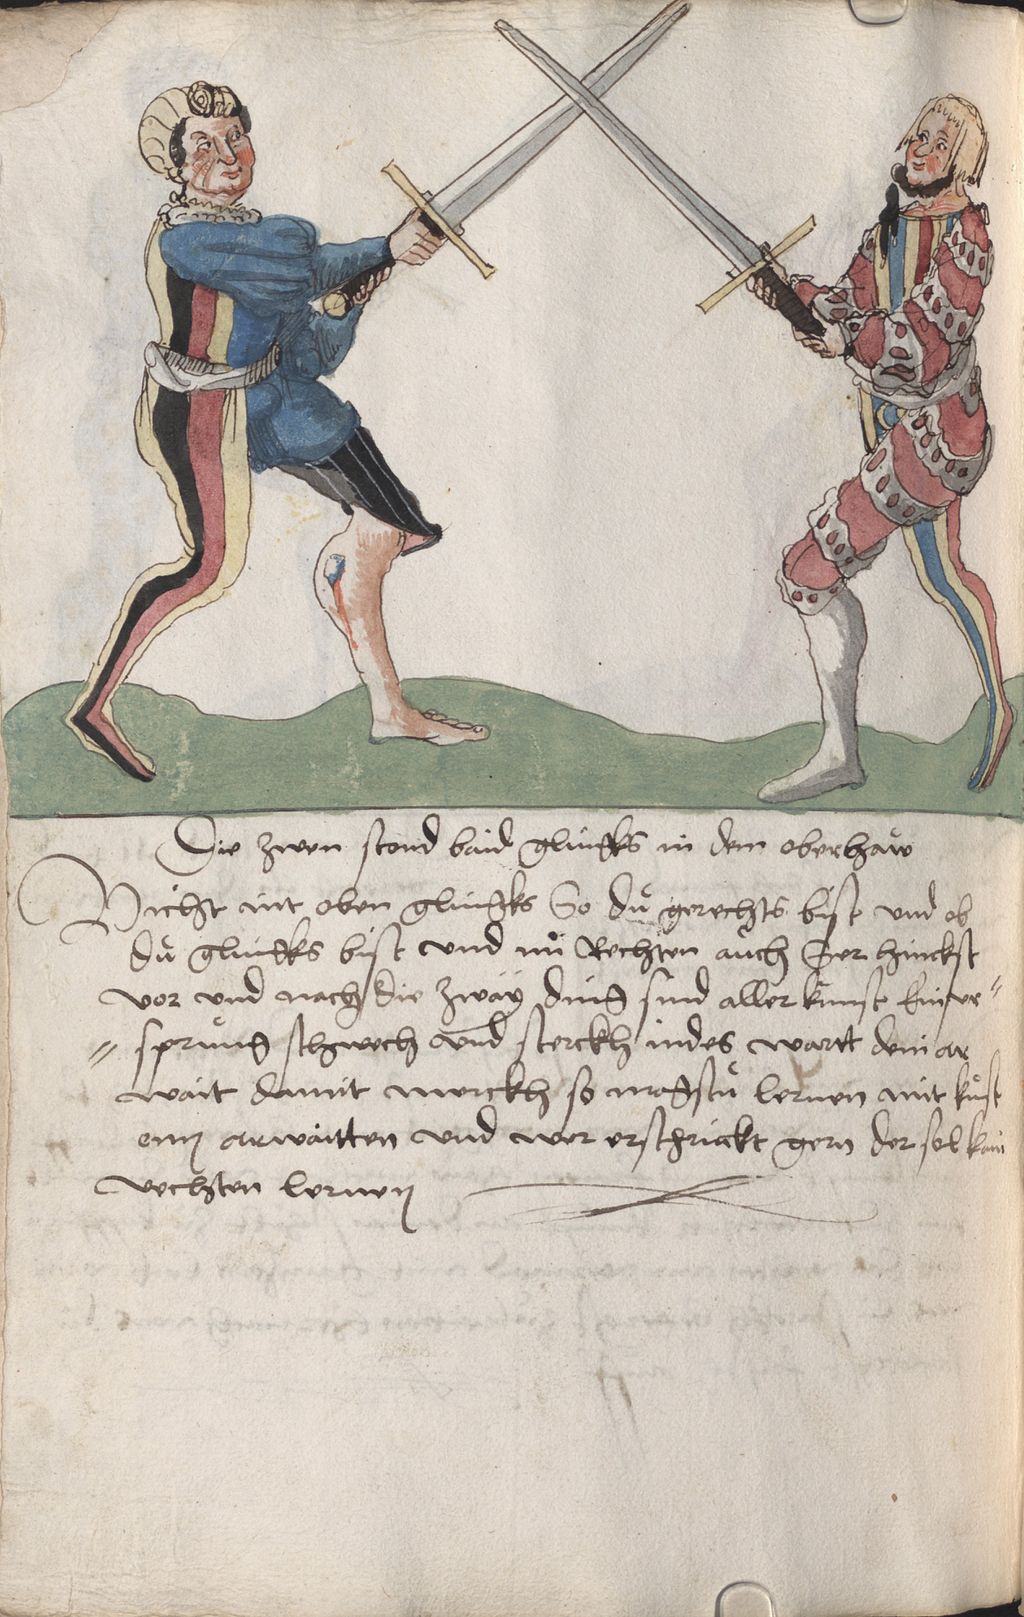 Die zwen stond baid glinckhs in dem oberhaw
Vicht nit oben glinckhs So dŭ gerechts bist vnd ob
dŭ glinckhs bist vnd im Rechten aŭch Ser hinckst
vor vnd nach die zway ding sind aller kŭnst Ein vr=
=sprŭng schwech vnd sterckh indes wartt dem ar
wait damit merckh so magstŭ lernen mit kŭst
arwaitten vnd wer erschrickt gern der sol kain
vechten lernen